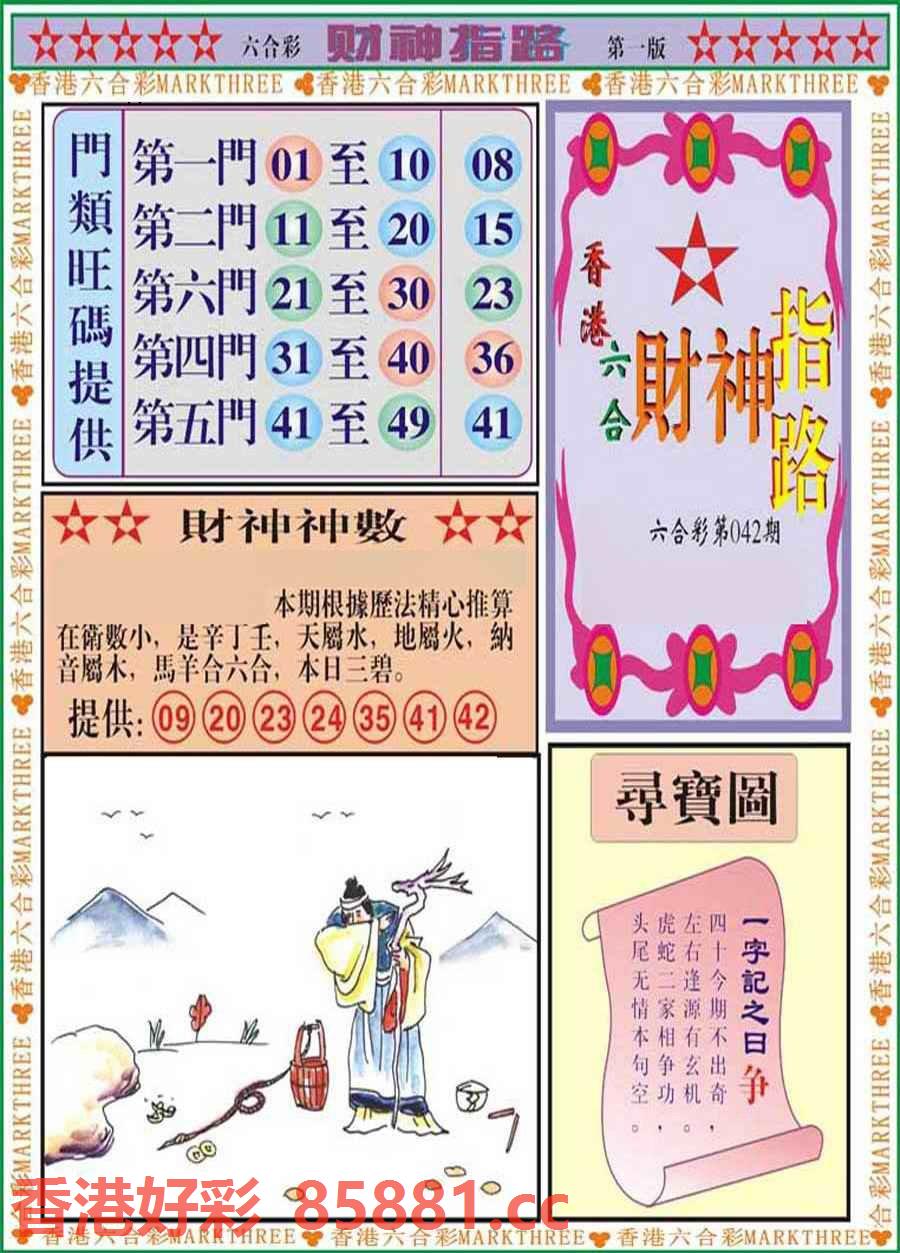 六合彩 财神指路 第一版
香港六合彩MARKTHREE 香港六合彩MARKTHREE 香港六合彩MARKTHREE
門類旺碼提供
第一門 01 至 10 08
第二門 11 至 20 15
第六門 21 至 30 23
第四門 31 至 40 36
第五門 41 至 49 41
香港六合
財神指路
六合彩第042期
財神神數
本期根據歷法精心推算
在衛數小，是辛丁壬，天屬水，地屬火，納
音屬木，馬羊合六合，本日三碧。
提供: 09 20 23 24 35 41 42
尋寶圖
一字記之曰 争
四十今期不出奇，
左右逢源有玄机。
虎蛇二家相争功，
头尾无情本句空。
香港六合彩MARKTHREE香港六合彩MARKTHREE香港六合彩MARKTHREE香港六合彩MARKTHREE香港六合
香港六合彩MARKTHREE香港六合彩MARKTHREE香港六合彩MARKTHREE香港六合彩MARKTHREE香港六合
香港好彩 85881.cc
香港六合彩MARKTHREE 香港六合彩MARKTHREE 香港六合彩MARKTHREE